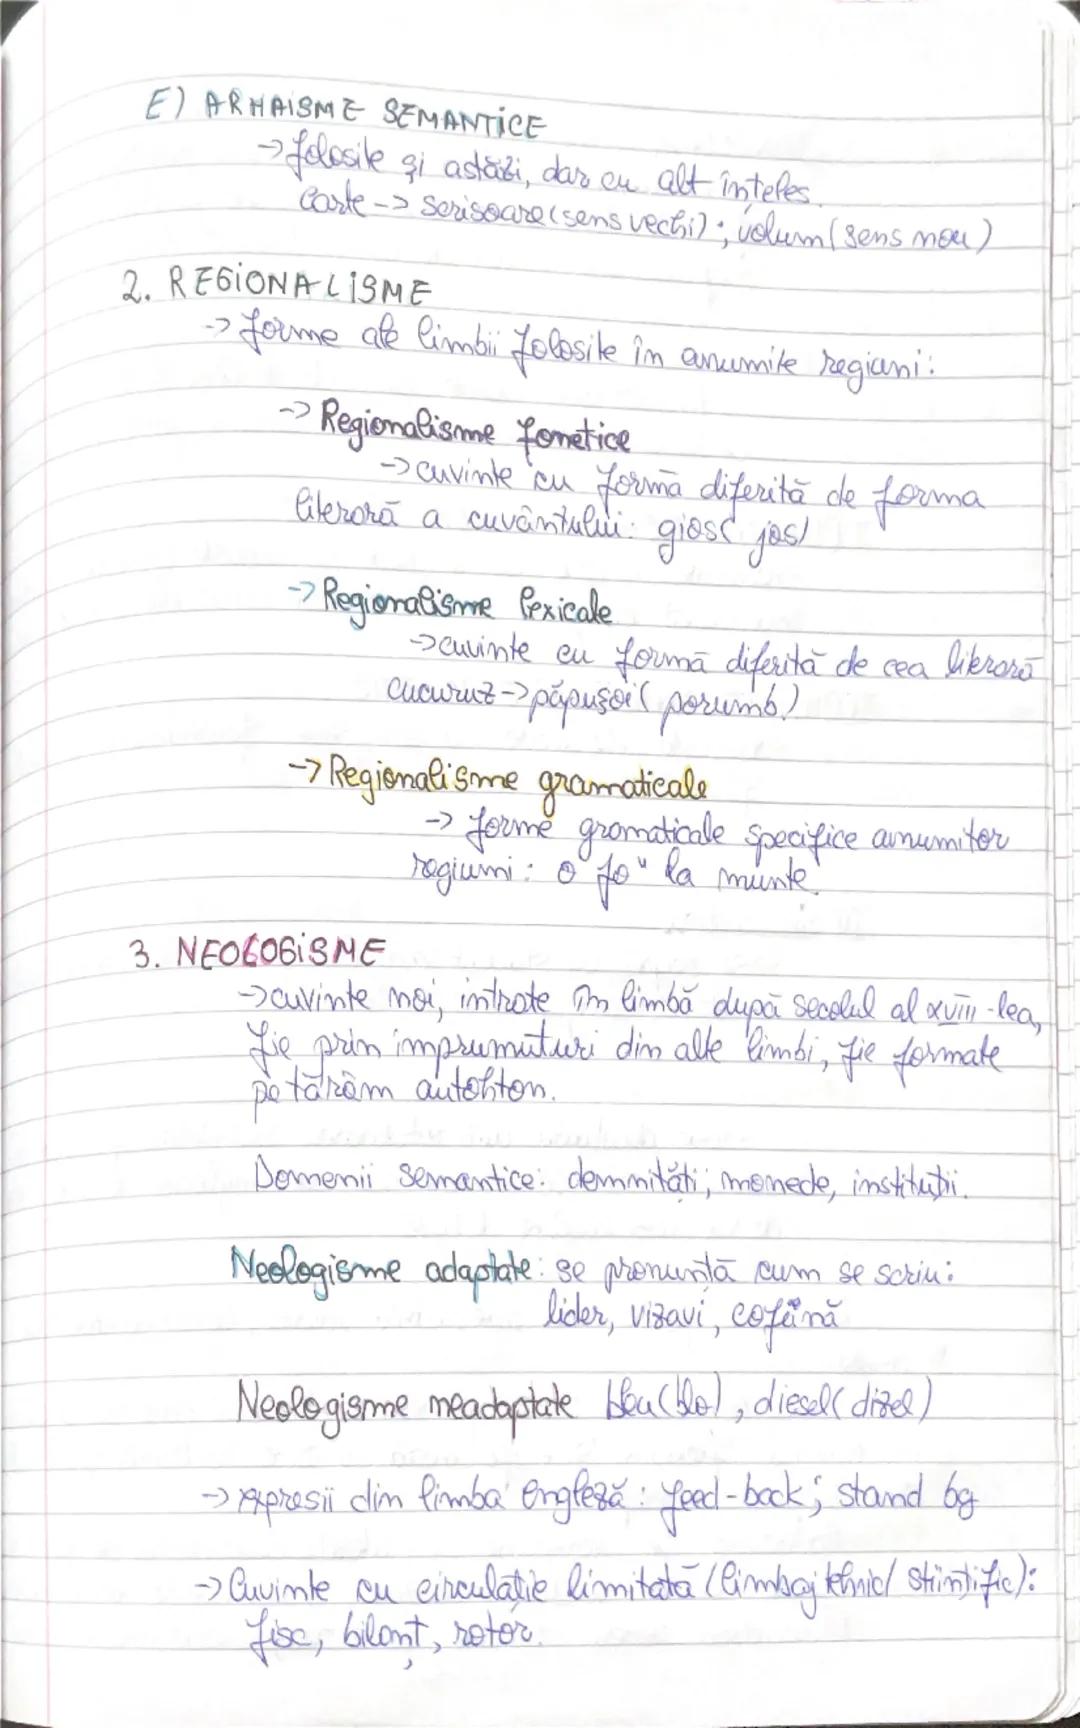 E) ARHAISME SEMANTICE
-> folosite și astăzi, dar cu alt înțeles.
Carte -> scrisoare (sens vechi); volum (sens nou)
2. REGIONALISME
-> forme ale limbii folosite în anumite regiuni:
-> Regionalisme fonetice
-> cuvinte cu formă diferită de forma
literară a cuvântului: gios( jos)
-> Regionalisme lexicale
-> cuvinte cu formă diferită de cea literară
cucuruz -> păpușoi( porumb)
-> Regionalisme gramaticale
-> forme gramaticale specifice anumitor
regiuni: o "fo" la munte.
3. NEOLOGISME
-> cuvinte noi, intrate în limbă după secolul al XVIII-lea,
fie prin împrumuturi din alte limbi, fie formate
pe tărâm autohton.
Domenii semantice: demnități; monede, instituții.
Neologisme adaptate: se pronunță cum se scriu:
lider, vizavi, cofeină
Neologisme neadaptate bleu (blo), diesel( dizel)
-> expresii din limba engleză: feed-back; stand by
-> Cuvinte cu circulație limitată (limbaj tehnic/ științific):
fisc, bilanț, rotor.